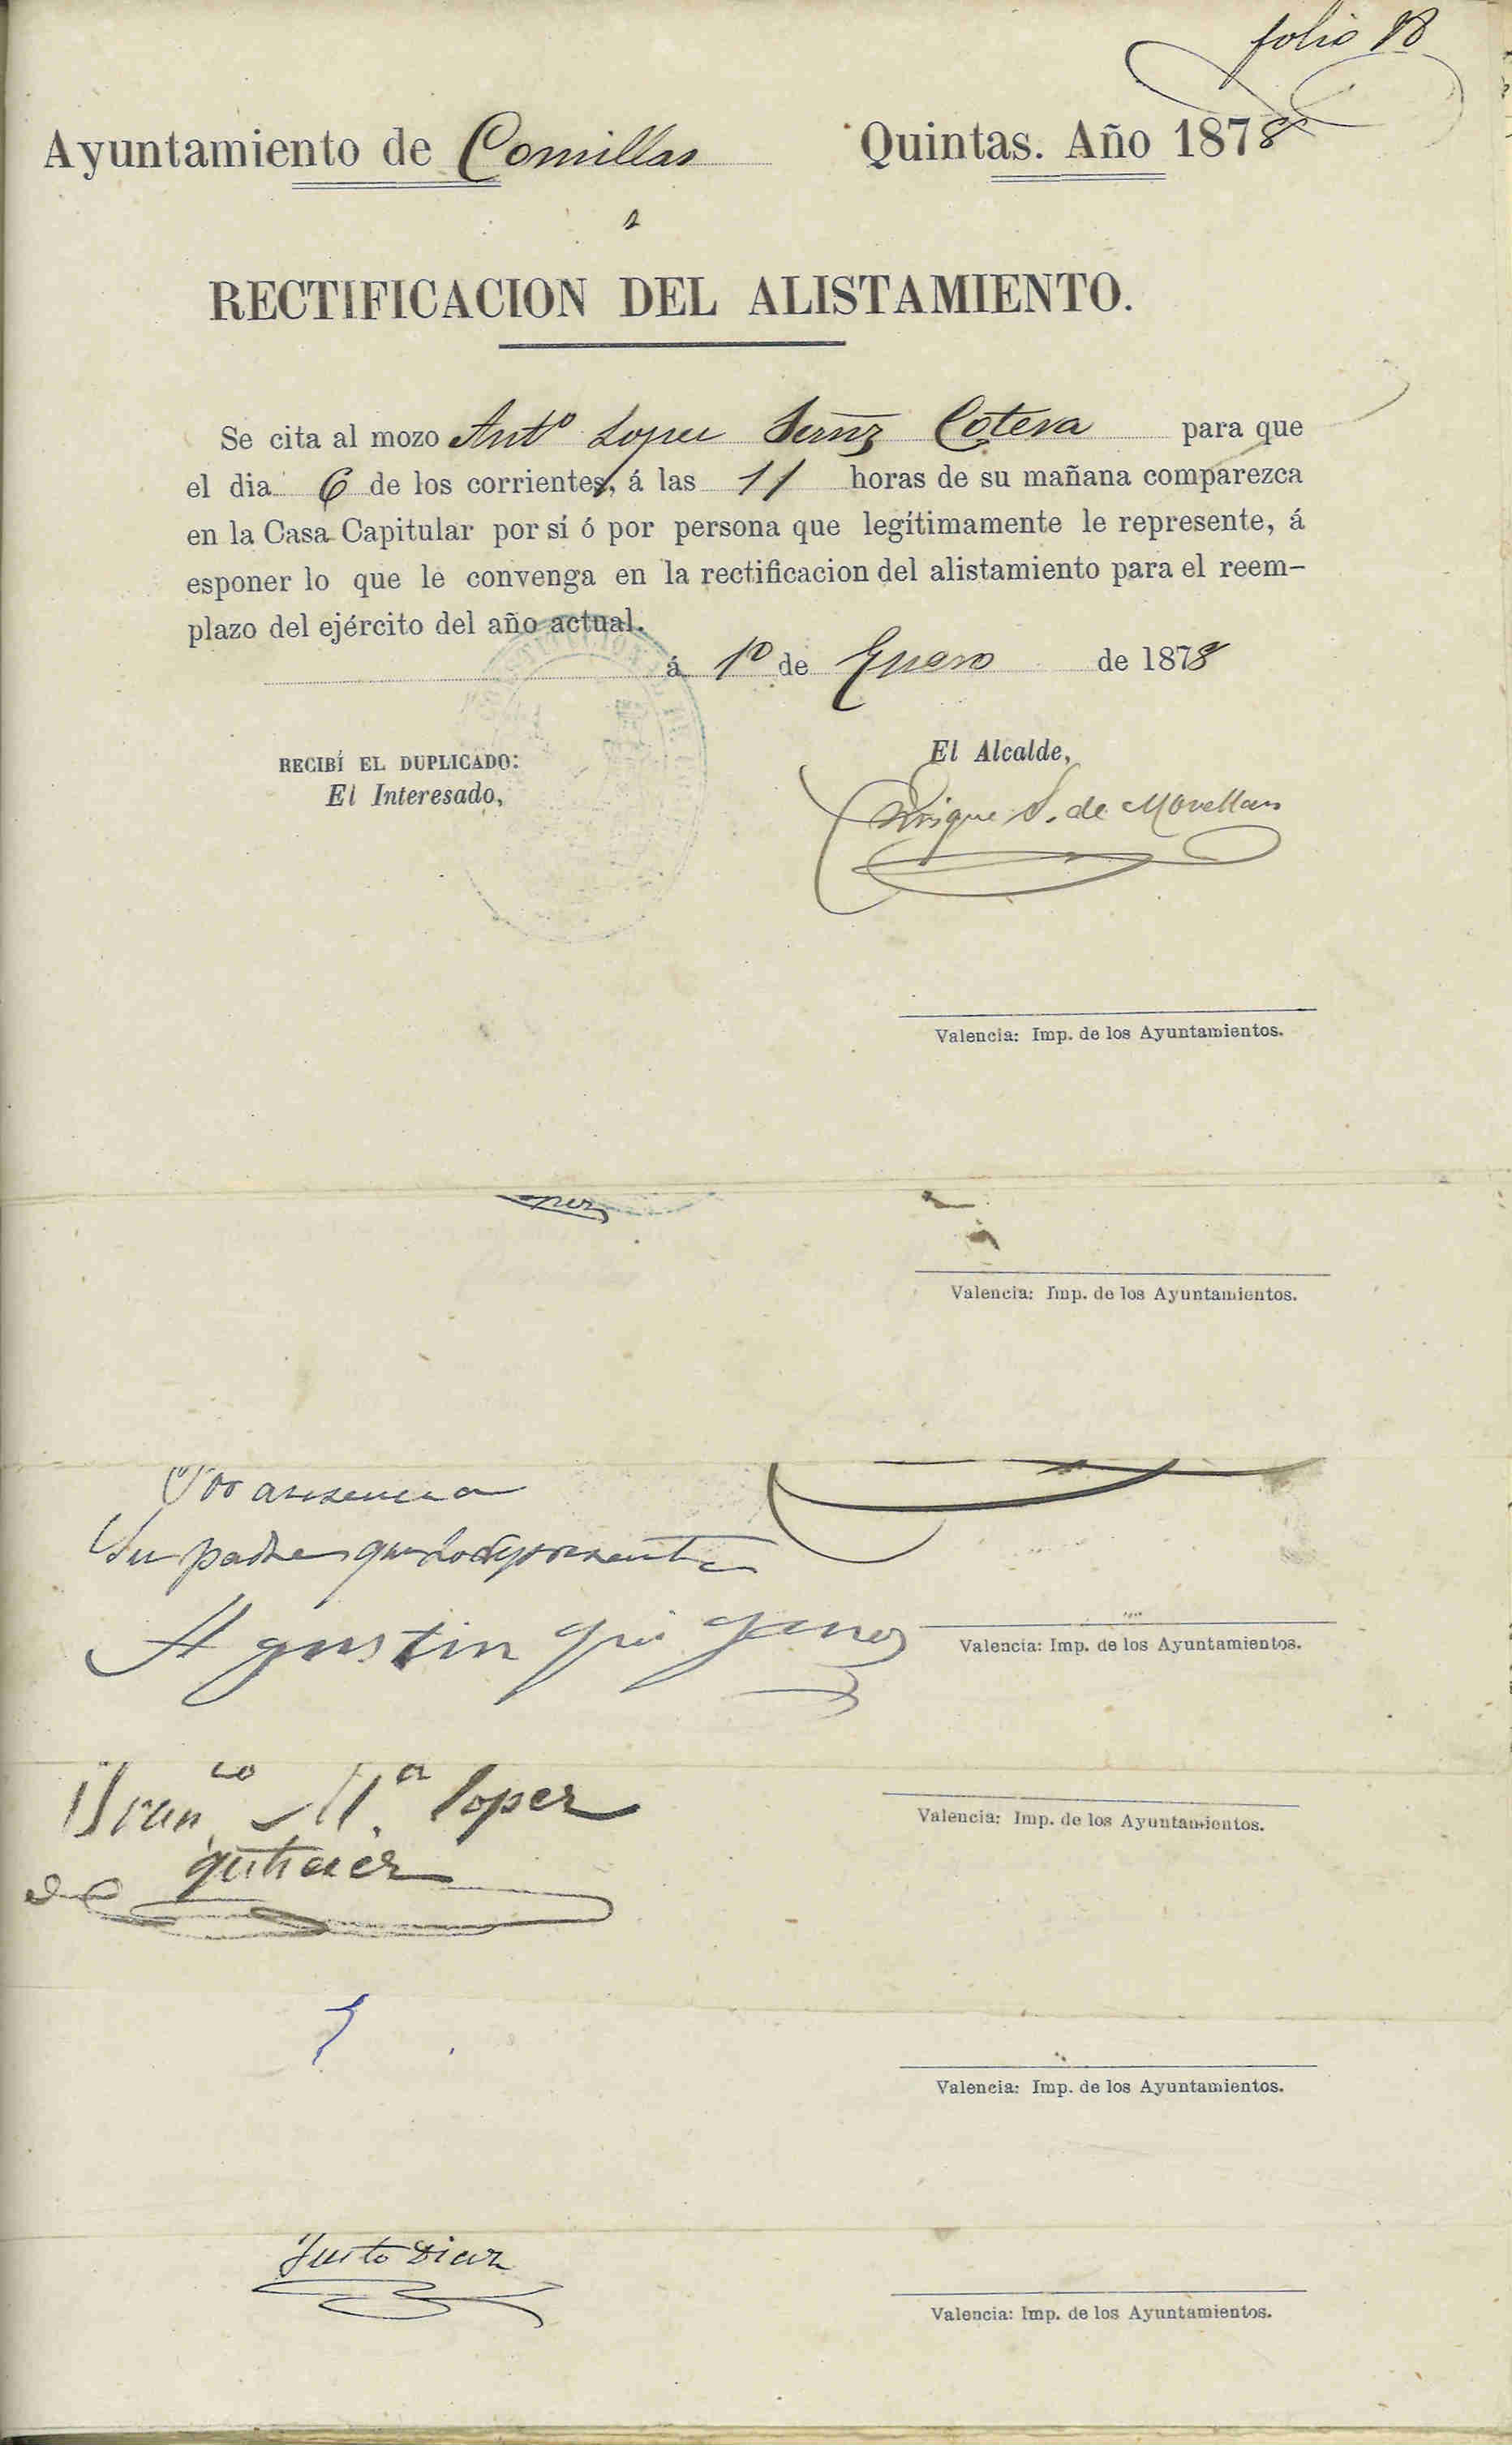 folio 18
Ayuntamiento de Comillas Quintas. Año 1878
RECTIFICACION DEL ALISTAMIENTO.
Se cita al mozo Antº Lopez Cotera para que
el dia 6 de los corrientes, á las 11 horas de su mañana comparezca
en la Casa Capitular por sí ó por persona que legítimamente le represente, á
esponer lo que le convenga en la rectificacion del alistamiento para el reem-
plazo del ejército del año actual.
á 1º de Enero de 1878
RECIBÍ EL DUPLICADO:
El Interesado,
El Alcalde,
Enrique S. de Movellan
Valencia: Imp. de los Ayuntamientos.
Valencia: Imp. de los Ayuntamientos.
Por ausencia
Su padre que lo
Agustin
Valencia: Imp. de los Ayuntamientos.
Franco Mª Lopez
Valencia: Imp. de los Ayuntamientos.
de gutierrez
Valencia: Imp. de los Ayuntamientos.
Justo Diaz
Valencia: Imp. de los Ayuntamientos.